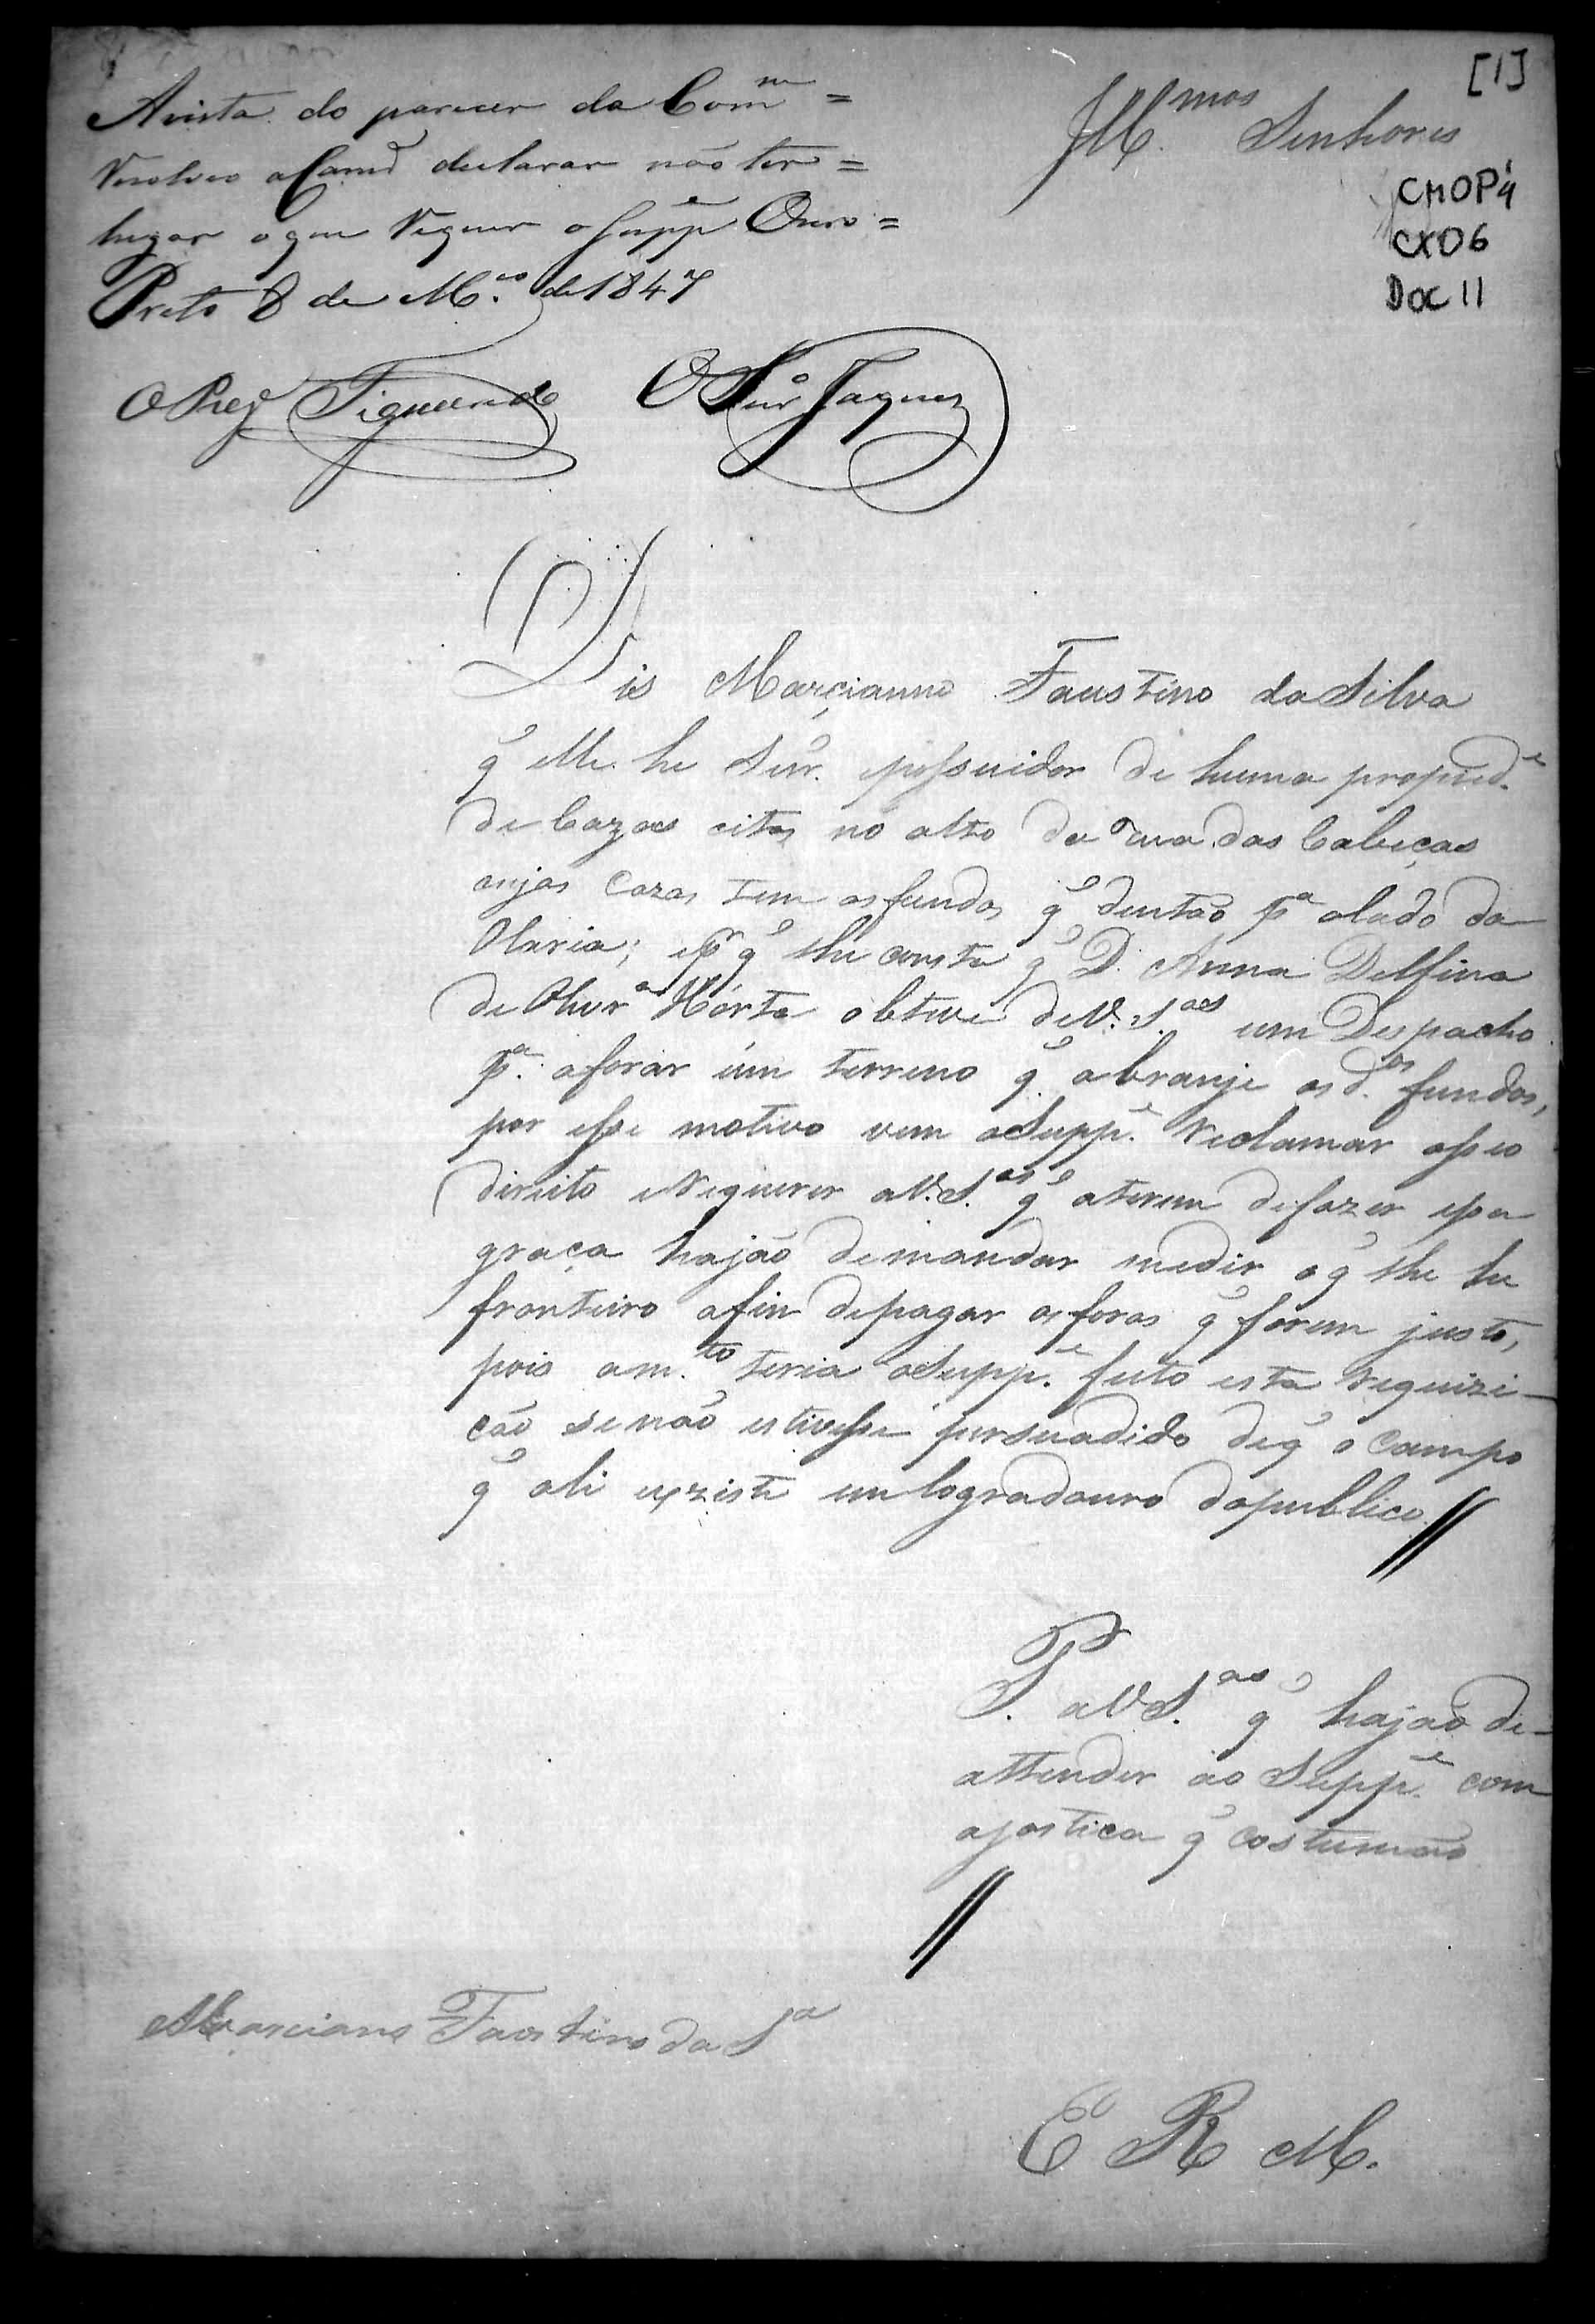 [1]
Avista do parecer da Com.m =
Resolveo a Camr.ª declarar não ter =
lugar o que Requer o Supp.e Ouro =
Preto 8 de M.ço de 1847
O Prez.e Figueiredo O Secr.o Taques
Ill.mos Senhores
CMOP4
CX06
Doc 11
Dis Marçianno Faustino da Silva
q̃ elle he Snr. epossuidor de huma propried.e
de Cazas citas no alto da rua das Cabeças
cujas Cazas tem os fundos q̃ deutão p.a olado da
Olaria; e p.r q̃ lhe consta q̃ D. Anna Delfina
de Olivr.a Hórta obteve de V. S.as um Despacho
p.a aforar úm terreno q̃ abranje os d.os fundos,
por esse motivo vem o Supp.e Reclamar osseo
direito e Requerer a V. S.as q̃ aterem defazer essa
graça hajão demandar medir o q̃ lhe he
fronteiro afim depagar os foros q̃ forem justo,
pois am.to teria o Supp.e feito esta requizi-
cão senão estivesse persuadido de q̃ o Campo
q̃ ali eyziste um logradouro dopublico //
P. a V. S.as q̃ hajão de-
attender ao Supp.e com
ajostica q̃ costumão
//
Marciano Faostino da S.a
E R M.